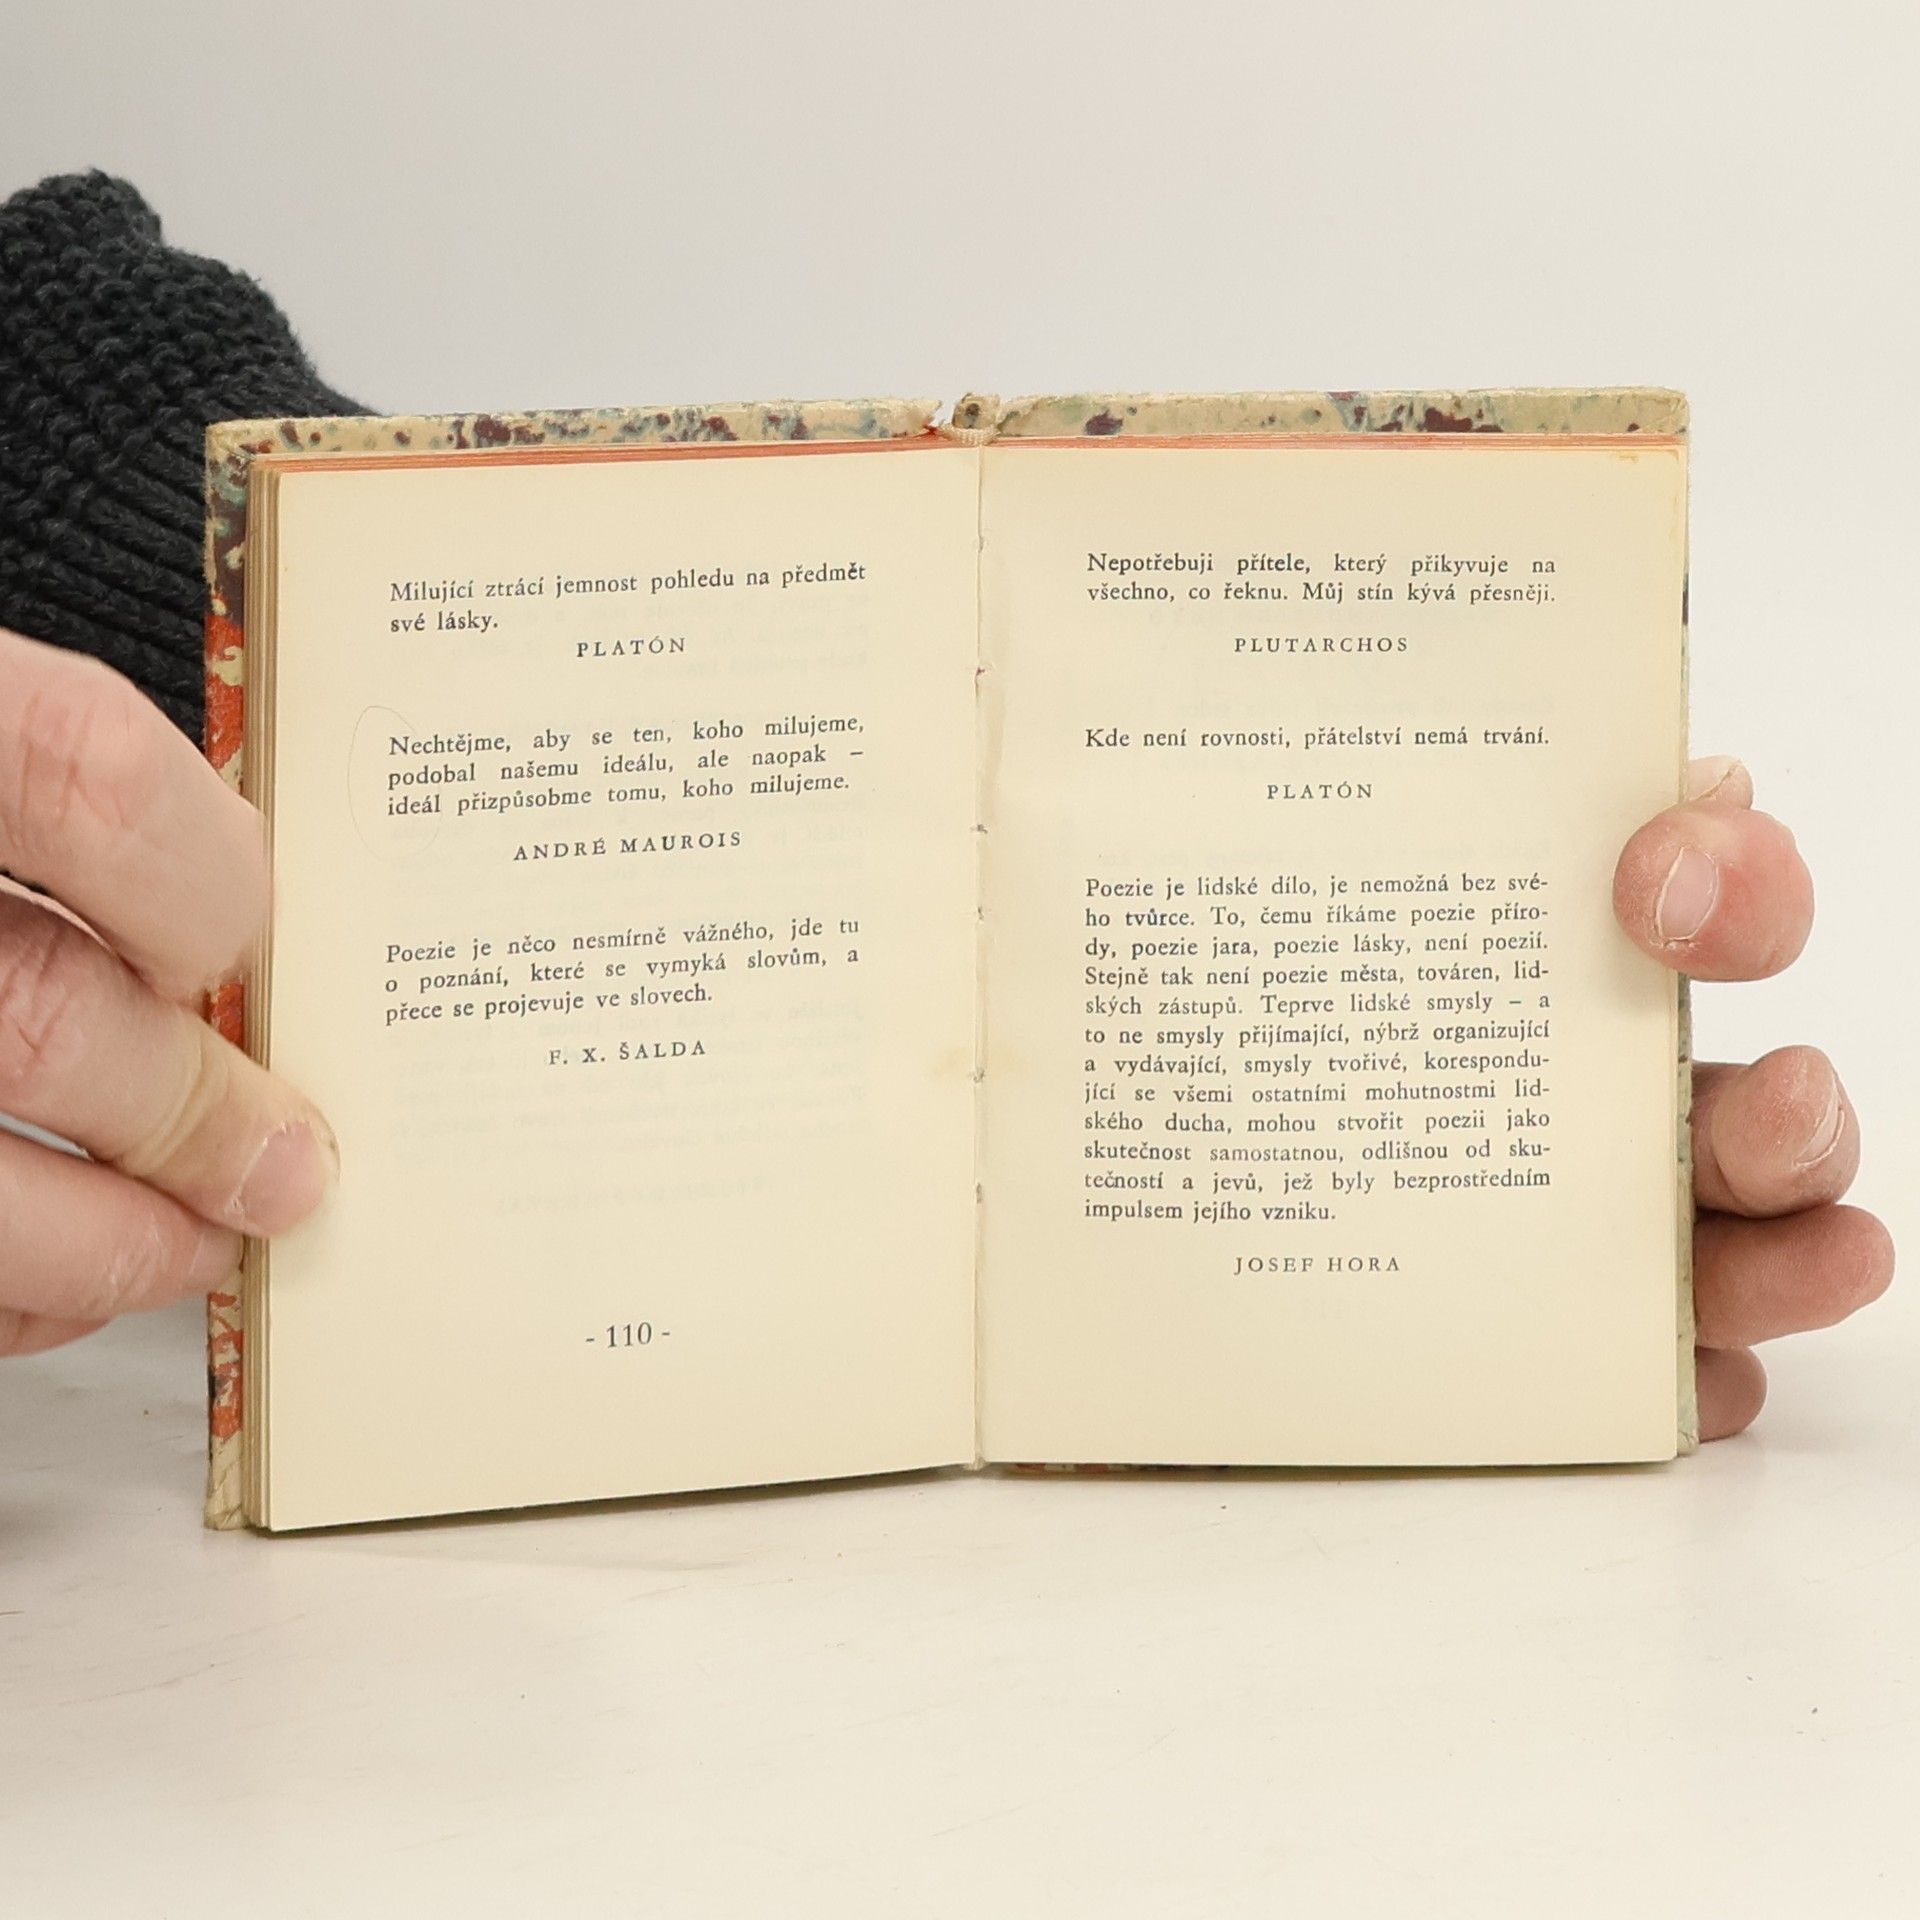 Milující ztrácí jemnost pohledu na předmět
své lásky.
PLATÓN
Nechtějme, aby se ten, koho milujeme,
podobal našemu ideálu, ale naopak –
ideál přizpůsobme tomu, koho milujeme.
ANDRÉ MAUROIS
Poezie je něco nesmírně vážného, jde tu
o poznání, které se vymyká slovům, a
přece se projevuje ve slovech.
F. X. ŠALDA
- 110 -
Nepotřebuji přítele, který přikyvuje na
všechno, co řeknu. Můj stín kývá přesněji.
PLUTARCHOS
Kde není rovnosti, přátelství nemá trvání.
PLATÓN
Poezie je lidské dílo, je nemožná bez své-
ho tvůrce. To, čemu říkáme poezie příro-
dy, poezie jara, poezie lásky, není poezií.
Stejně tak není poezie města, továren, lid-
ských zástupů. Teprve lidské smysly – a
to ne smysly přijímající, nýbrž organizující
a vydávající, smysly tvořivé, korespondu-
jící se všemi ostatními mohutnostmi lid-
ského ducha, mohou stvořit poezii jako
skutečnost samostatnou, odlišnou od sku-
tečností a jevů, jež byly bezprostředním
impulsem jejího vzniku.
JOSEF HORA